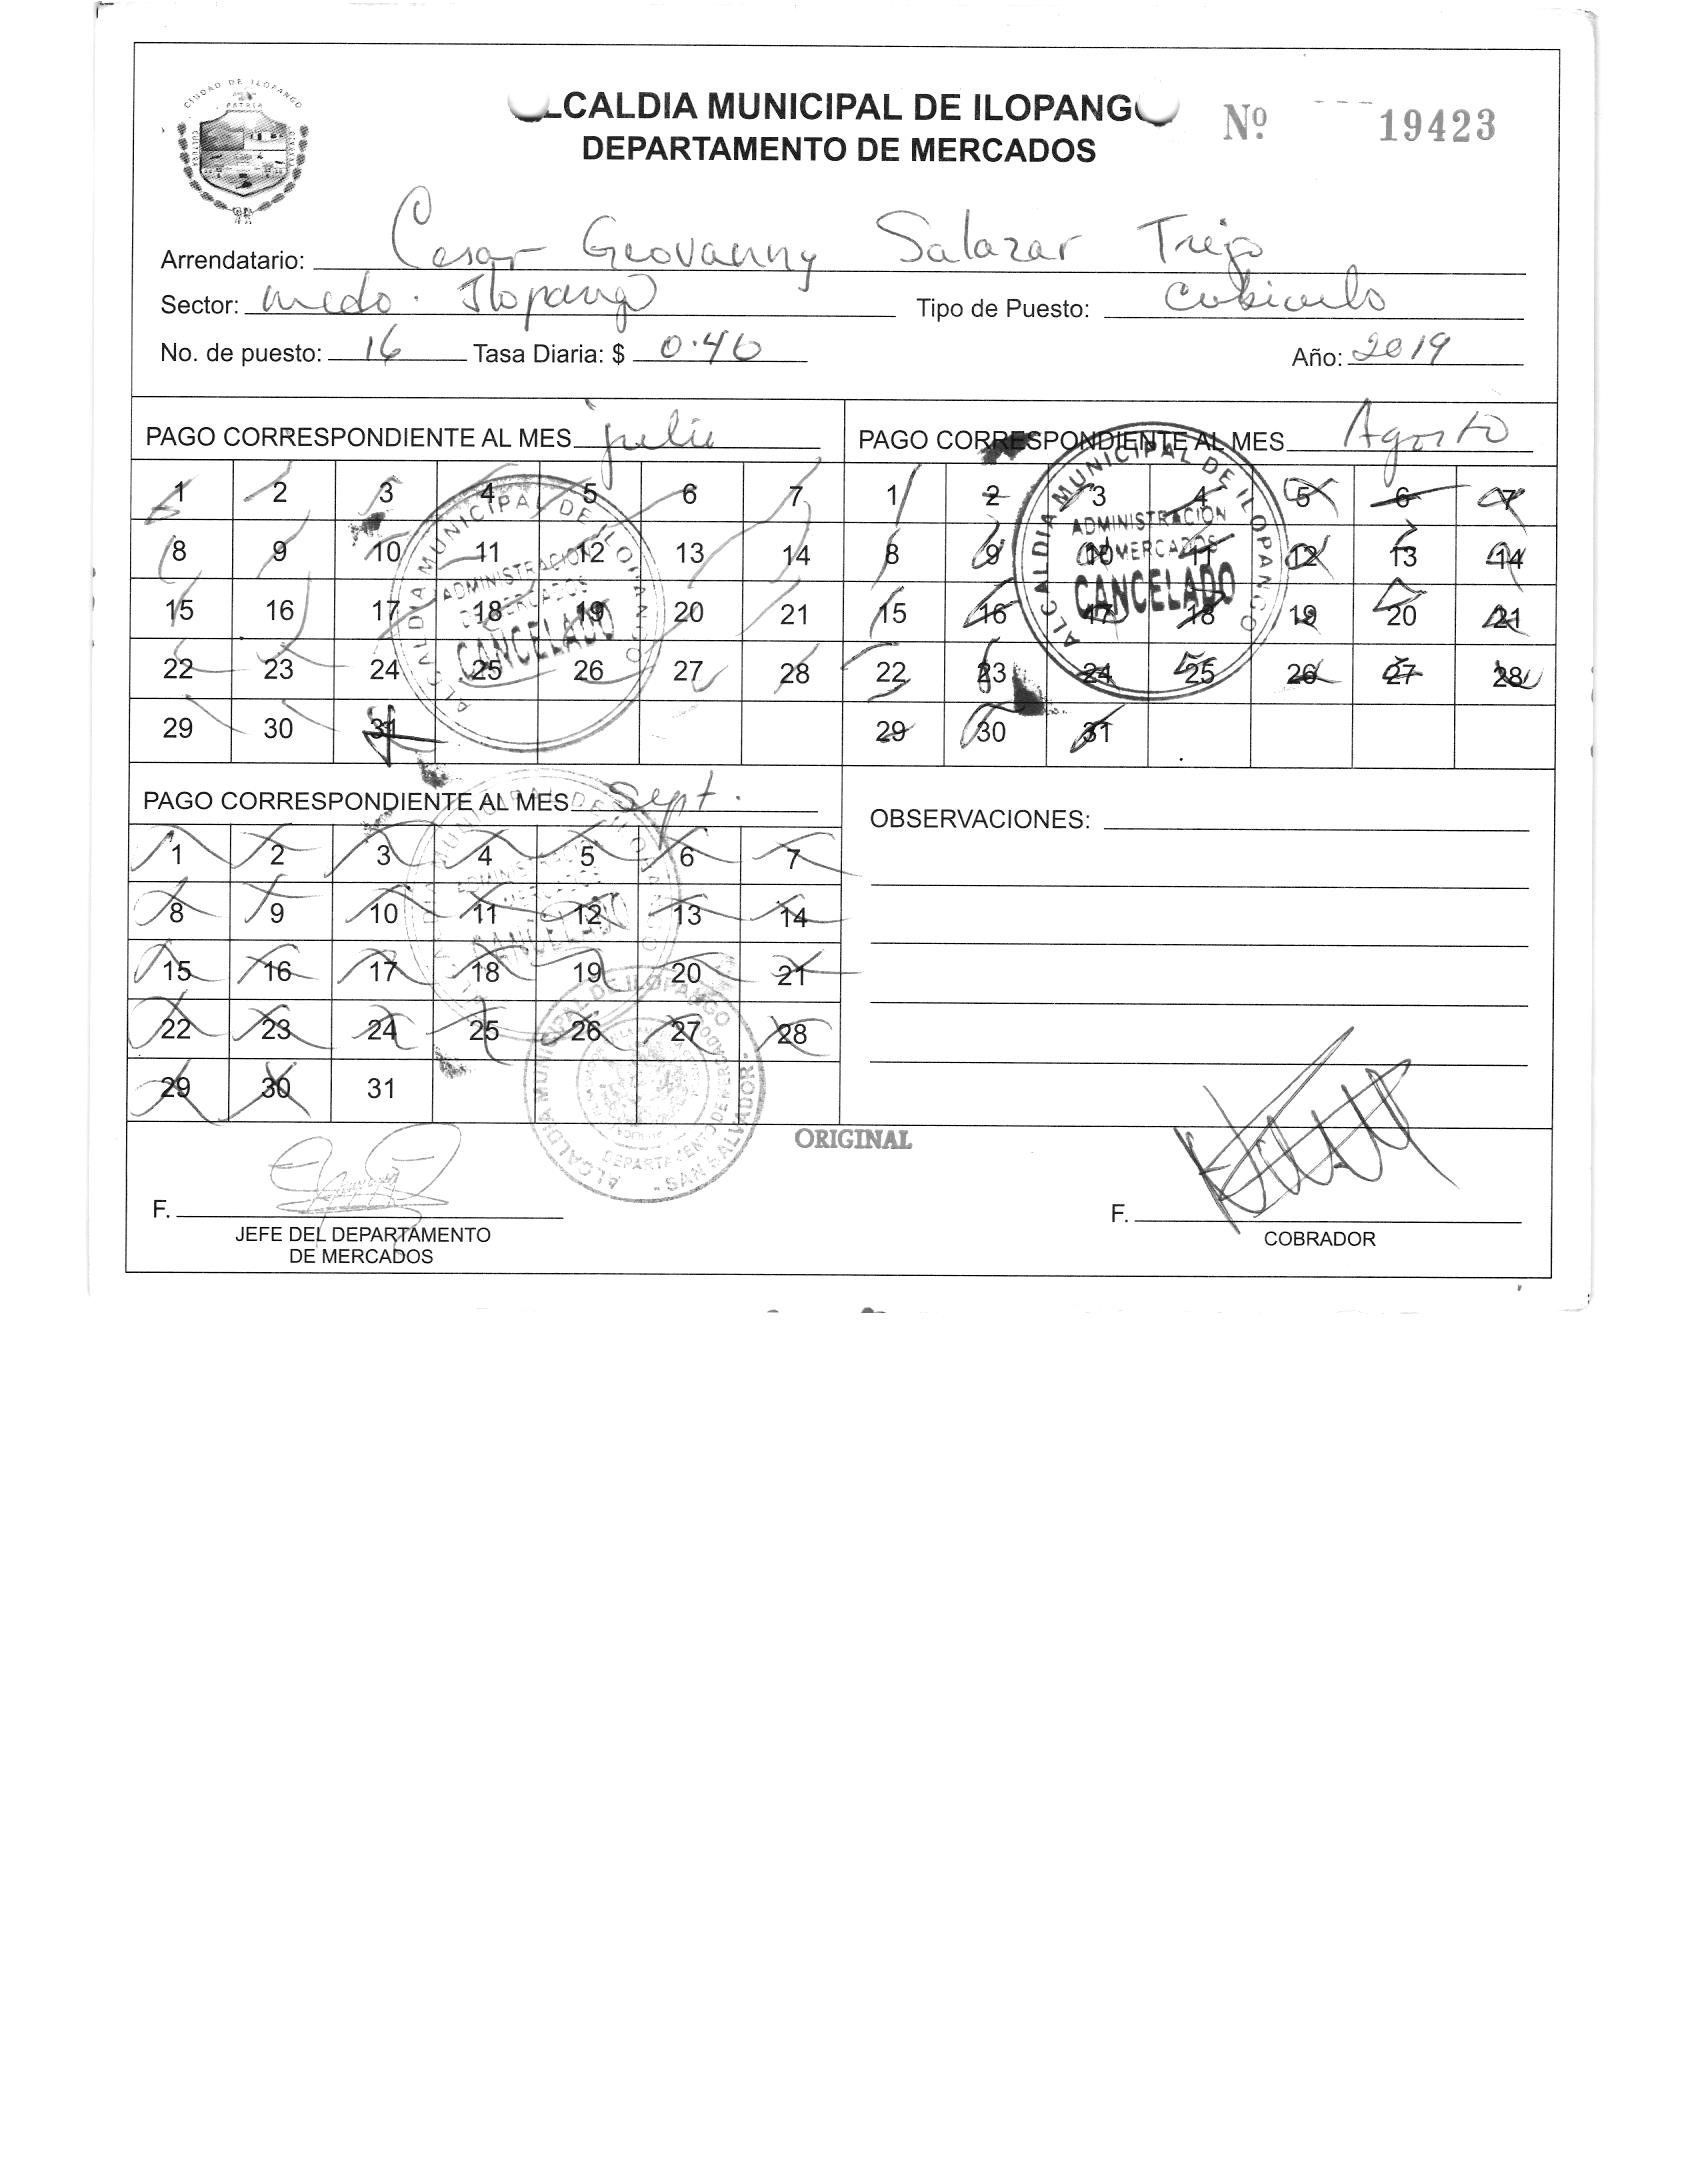 CIUDAD DE ILOPANGO
PATRIA
ALCALDIA MUNICIPAL DE ILOPANGO
Nº 19423
DEPARTAMENTO DE MERCADOS
Arrendatario: Cesar Geovanny Salazar Trejo
Sector: Mcdo. Ilopango Tipo de Puesto: cubiculo
No. de puesto: 16 Tasa Diaria: $ 0.46 Año: 2019
PAGO CORRESPONDIENTE AL MES julio
1 2 3 4 5 6 7
8 9 10 11 12 13 14
15 16 17 18 19 20 21
22 23 24 25 26 27 28
29 30 31
ALCALDIA MUNICIPAL DE ILOPANGO
ADMINISTRACION
DE MERCADOS
CANCELADO
PAGO CORRESPONDIENTE AL MES Agosto
1 2 3 4 5 6 7
8 9 10 11 12 13 14
15 16 17 18 19 20 21
22 23 24 25 26 27 28
29 30 31
ALCALDIA MUNICIPAL DE ILOPANGO
ADMINISTRACION
DE MERCADOS
CANCELADO
PAGO CORRESPONDIENTE AL MES Sept.
1 2 3 4 5 6 7
8 9 10 11 12 13 14
15 16 17 18 19 20 21
22 23 24 25 26 27 28
29 30 31
MUNICIPAL DE ILOPANGO
ADMINISTRACION
DE MERCADOS
CANCELADO
OBSERVACIONES:
ALCALDIA MUNICIPAL DE ILOPANGO
DEPARTAMENTO DE MERCADOS
- SAN SALVADOR -
ORIGINAL
F.
JEFE DEL DEPARTAMENTO
DE MERCADOS
F.
COBRADOR